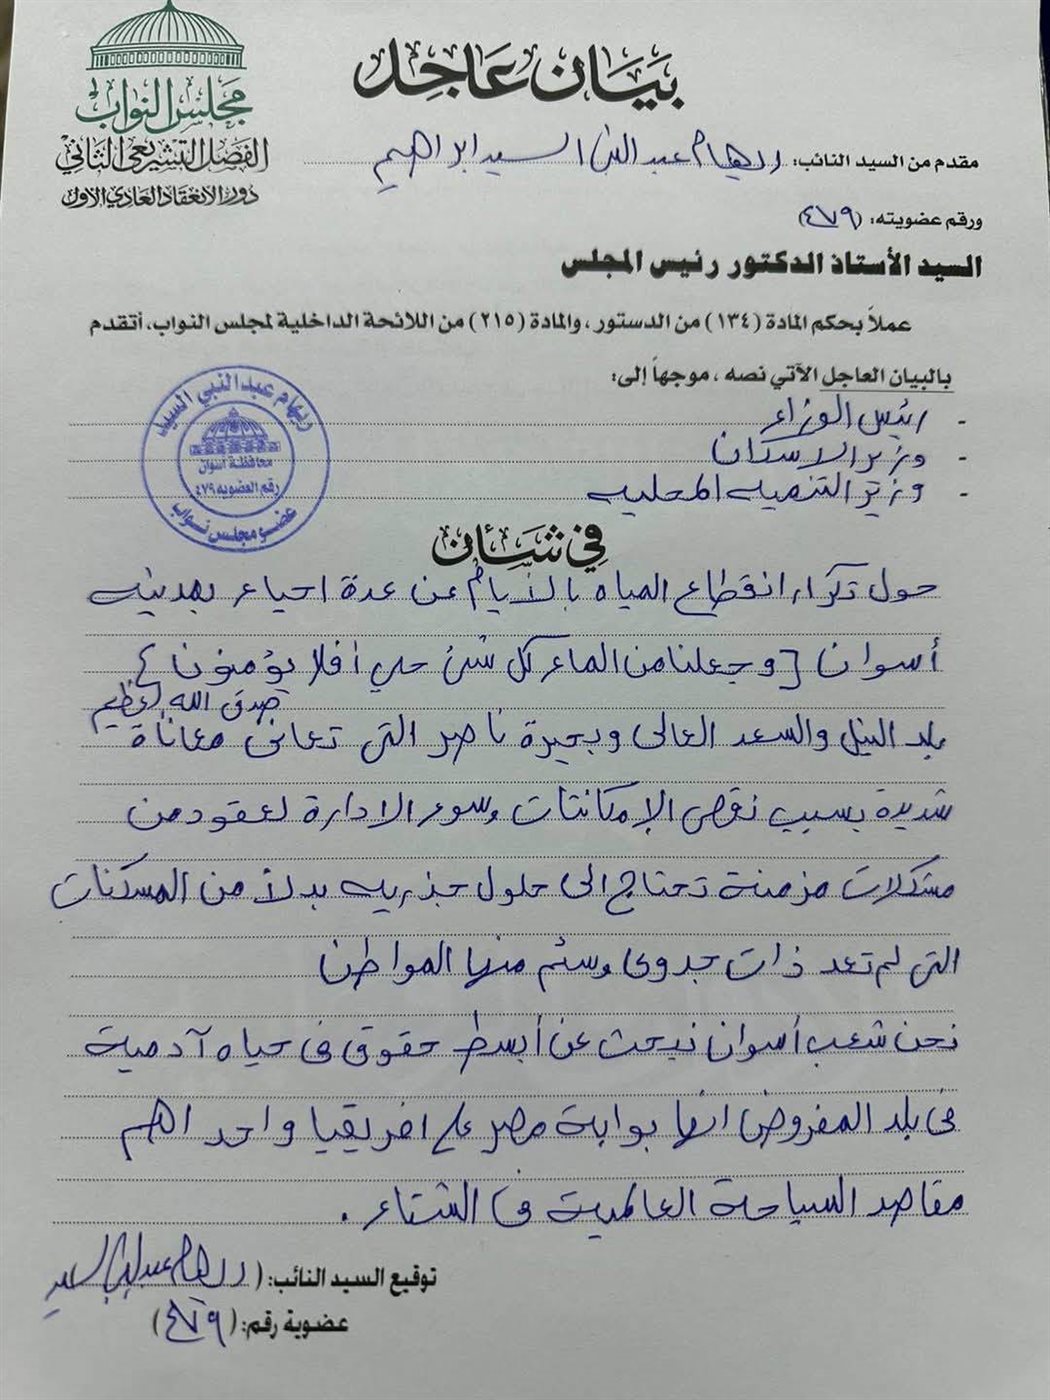 مجلس النواب
الفصل التشريعى الثاني
دور الانعقاد العادي الأول
بيان عاجل
مقدم من السيد النائب: ريهام عبد النبى السيد ابراهيم
ورقم عضويته: (٤٧٩)
السيد الأستاذ الدكتور رئيس المجلس
عملاً بحكم المادة (١٣٤) من الدستور، والمادة (٢١٥) من اللائحة الداخلية لمجلس النواب، أتقدم
بالبيان العاجل الآتي نصه، موجهاً إلى:
- رئيس الوزراء
- وزير الاسكان
- وزير التنميه المحليه
ريهام عبدالنبي السيد
محافظة أسوان
رقم العضويه ٤٧٩
عضو مجلس نواب
في شأن
حول تكرار انقطاع المياه بالأيام عن عدة احياء بمدينه
أسوان [ وجعلنا من الماء كل شئ حي أفلا يؤمنون ]
صدق الله العظيم
بلد النيل والسد العالى وبحيرة ناصر التى تعانى معاناة
شديدة بسبب نقص الإمكانتات وسوء الادارة لعقود من
مشكلات مزمنة تحتاج الى حلول جذريه بدلاً من المسكنات
التى لم تعد ذات جدوى وسئم منها المواطن
نحن شعب أسوان نبحث عن أبسط حقوق فى حياه آدمية
فى بلد المفروض انها بوابة مصر على افريقيا واحد اهم
مقاصد السياحة العالمية فى الشتاء .
توقيع السيد النائب: (ريهام عبد النبى السيد
عضوية رقم: (٤٧٩)